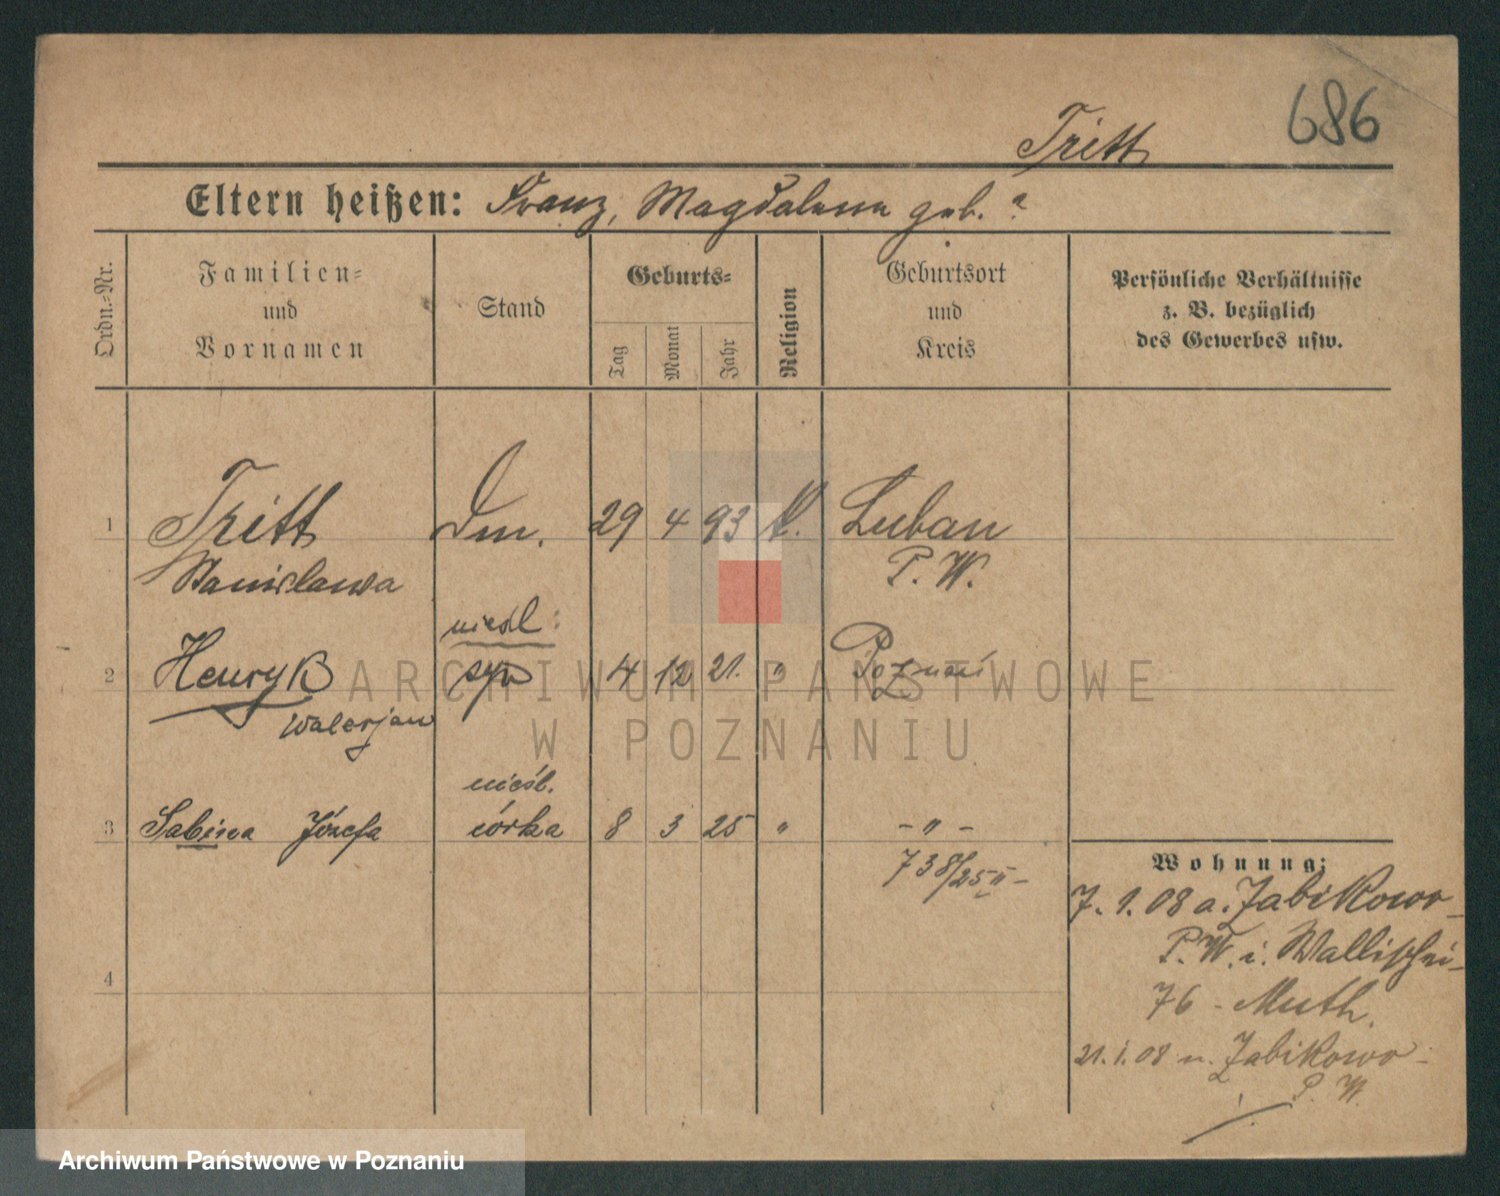 686
Tritt
Eltern heißen: Franz, Magdalena geb. ?
Ordn.=Nr.
Familien=
und
Vornamen
Stand
Geburts=
Tag
Monat
Jahr
Religion
Geburtsort
und
Kreis
Persönliche Verhältnisse
z. B. bezüglich
des Gewerbes usw.
1 Tritt Dm. 29 4 93 K. Luban
Stanislawa P. W.
nieśl:
2 Henryk syn 4 12 21. " Poznań
Walerjan
nieśl.
3 Sabina Józefa córka 8 3 25 " - " -
738/25 II -
4
Wohnung:
7. 1. 08 a. Zabikowo
P. W. i. Wallischei
76 - Muth.
21. 1. 08 n. Zabikowo
P. W.
ARCHIWUM PAŃSTWOWE
W POZNANIU
Archiwum Państwowe w Poznaniu